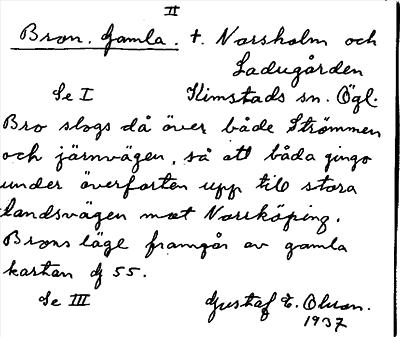 II
Bron. Gamla. t. Norsholm och
Ladugården
Se I Kimstads sn. Ögl.
Bro slogs då över både Strömmen
och järnvägen, så att båda gingo
under överfarten upp till stora
landsvägen mot Norrköping.
Brons läge framgår av gamla
kartan G 55.
Se III Gustaf E. Olsson.
1937